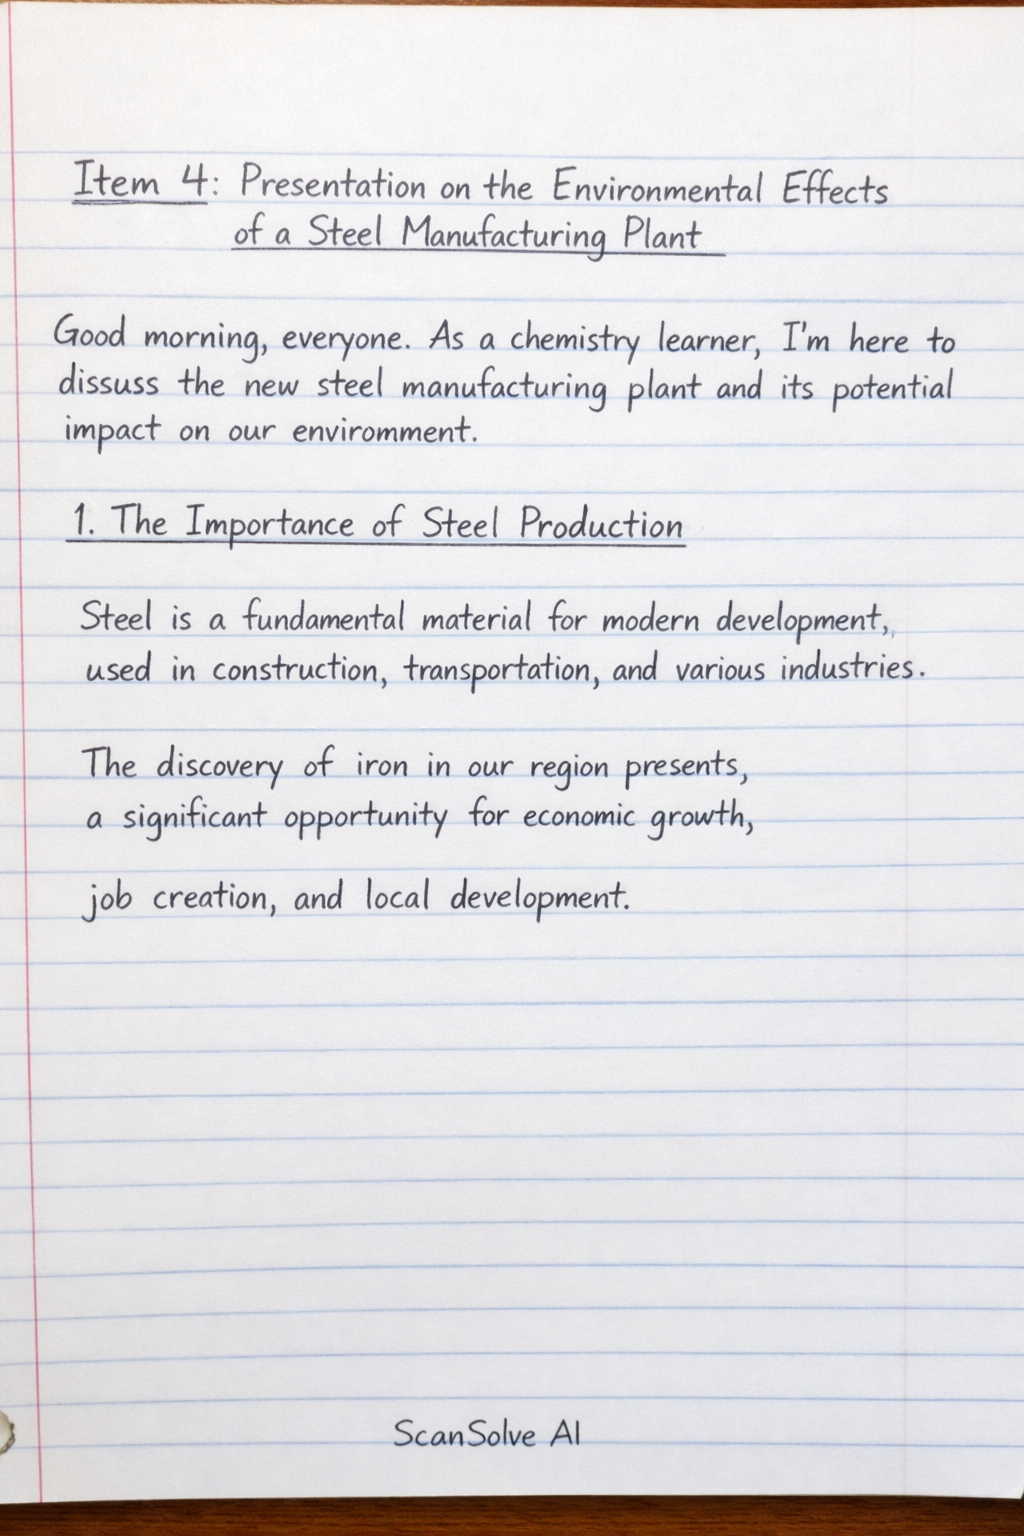 Item 4: Presentation on the Environmental Effects
of a Steel Manufacturing Plant
Good morning, everyone. As a chemistry learner, I'm here to
dissuss the new steel manufacturing plant and its potential
impact on our enviromment.
1. The Importance of Steel Production
Steel is a fundamental material for modern development,,
used in construction, transportation, and various industries.
The discovery of iron in our region presents,
a significant opportunity for economic growth,
job creation, and local development.
ScanSolve AI